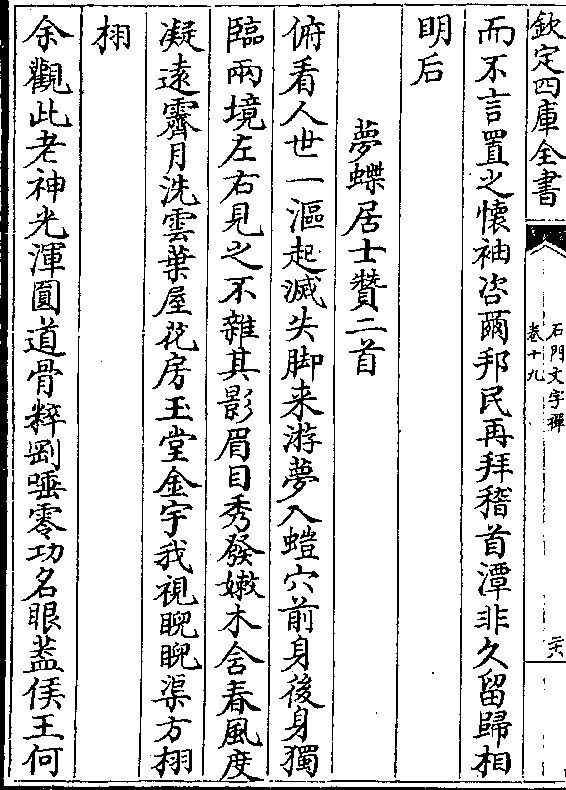 欽定四庫全書
石門文字禪
卷十九
二六
而不言置之懷袖咨爾邦民再拜稽首潭非久留歸相
明后
夢蝶居士贊二首
俯看人世一漚起滅失脚来游夢入螘穴前身後身獨
臨兩境左右見之不雜其影眉目秀發嫩木含春風度
凝遠霽月洗雲葉屋花房玉堂金宇我視睨睨渠方栩
栩
余觀此老神光渾圓道骨粹剛唾零功名眼葢侯王何